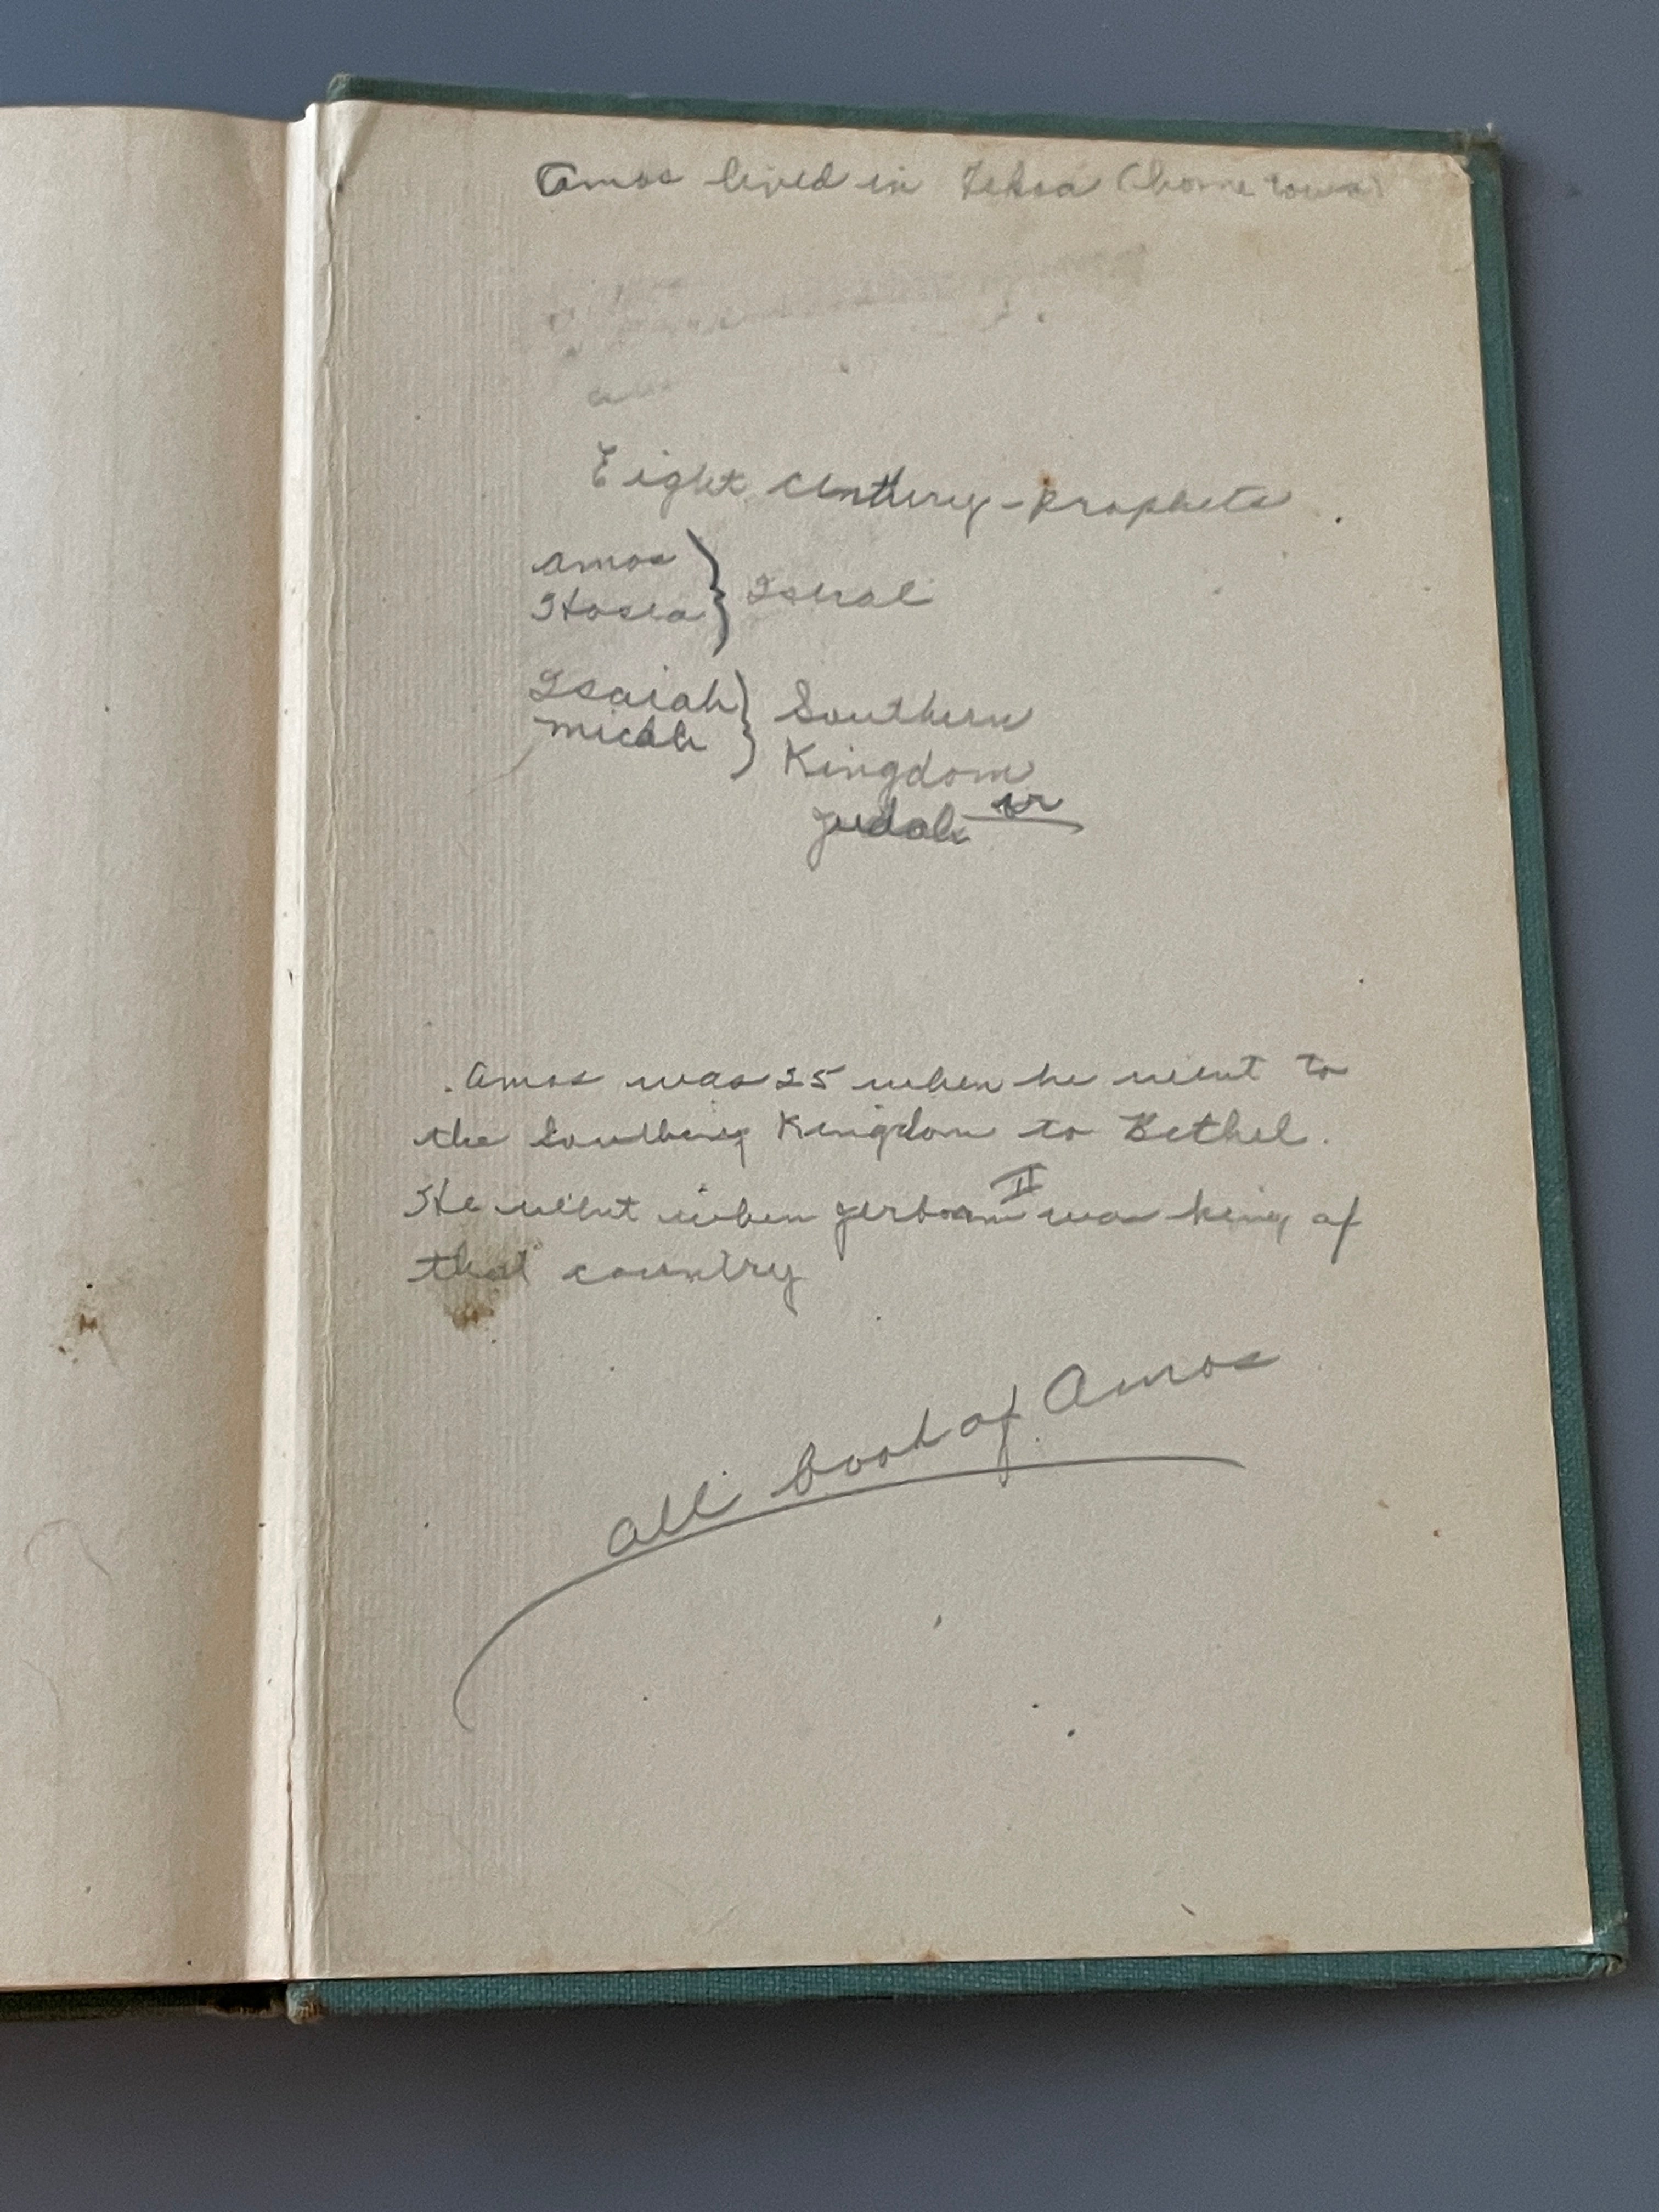 Amos lived in Tekoa (home town)
Eight Century-Prophets
Amos } Isral
Hosea
Isaiah } Southern
Micah Kingdom
Judah
Amos was 25 when he went to
the Kingdom to Bethel.
He went when Jerboam II was king of
that country
all book of Amos